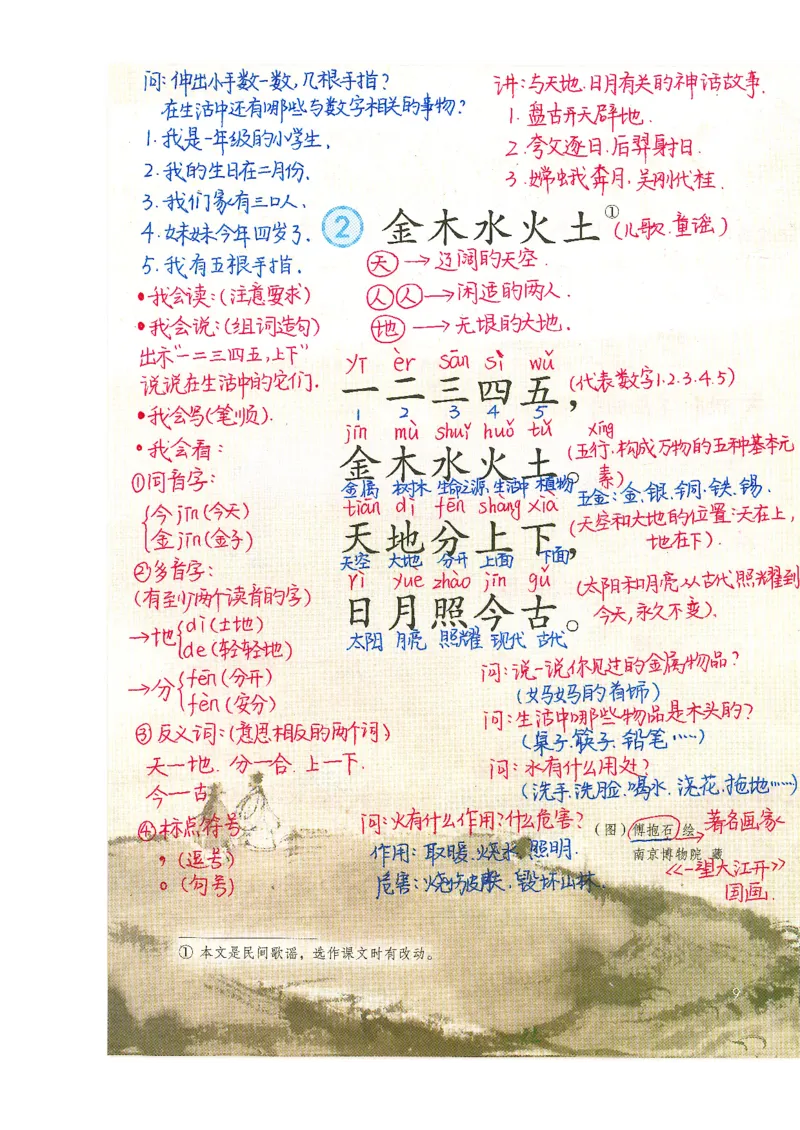 问:伸出小手数一数,几根手指?
在生活中还有哪些与数字相关的事物?
1.我是一年级的小学生.
2.我的生日在二月份.
3.我们家有三口人.
4.妹妹今年四岁了.
5.我有五根手指.
讲:与天地.日月有关的神话故事.
1.盘古开天辟地.
2.夸父逐日.后羿射日.
3.嫦娥奔月.吴刚伐桂.
2 金木水火土①(儿歌.童谣)
天→辽阔的天空.
人人→闲适的两人.
地→无垠的大地.
•我会读:(注意要求)
•我会说:(组词造句)
出示"一二三四五,上下"
说说在生活中的它们.
•我会写(笔顺).
•我会看:
①同音字:
今jīn(今天)
金jīn(金子)
②多音字:
(有至少两个读音的字)
→地
dì(土地)
de(轻轻地)
→分
fēn(分开)
fèn(安分)
③反义词:(意思相反的两个词)
天—地.分—合.上—下.
今—古
④标点符号
,(逗号)
。(句号)
yī èr sān sì wǔ
一二三四五,(代表数字1.2.3.4.5)
1 2 3 4 5
jīn mù shuǐ huǒ tǔ xíng
金木水火土。(五行.构成万物的五种基本元素)
金属 树木 生命之源 生活中 植物
五金:金.银.铜.铁.锡.
tiān dì fēn shàng xià
天地分上下,(天空和大地的位置:天在上,地在下).
天空 大地 分开 上面 下面
rì yuè zhào jīn gǔ
日月照今古。(太阳和月亮从古代照耀到今天,永久不变).
太阳 月亮 照耀 现代 古代
问:说一说你见过的金属物品?
(妈妈的首饰)
问:生活中哪些物品是木头的?
(桌子.筷子.铅笔……)
问:水有什么用处?
(洗手.洗脸.喝水.浇花.拖地……)
问:火有什么作用?什么危害?
作用:取暖.烧水.照明.
危害:烧伤皮肤.毁坏山林.
(图)傅抱石 绘 著名画家
南京博物院 藏
《一望大江开》
国画.
① 本文是民间歌谣,选作课文时有改动。
9